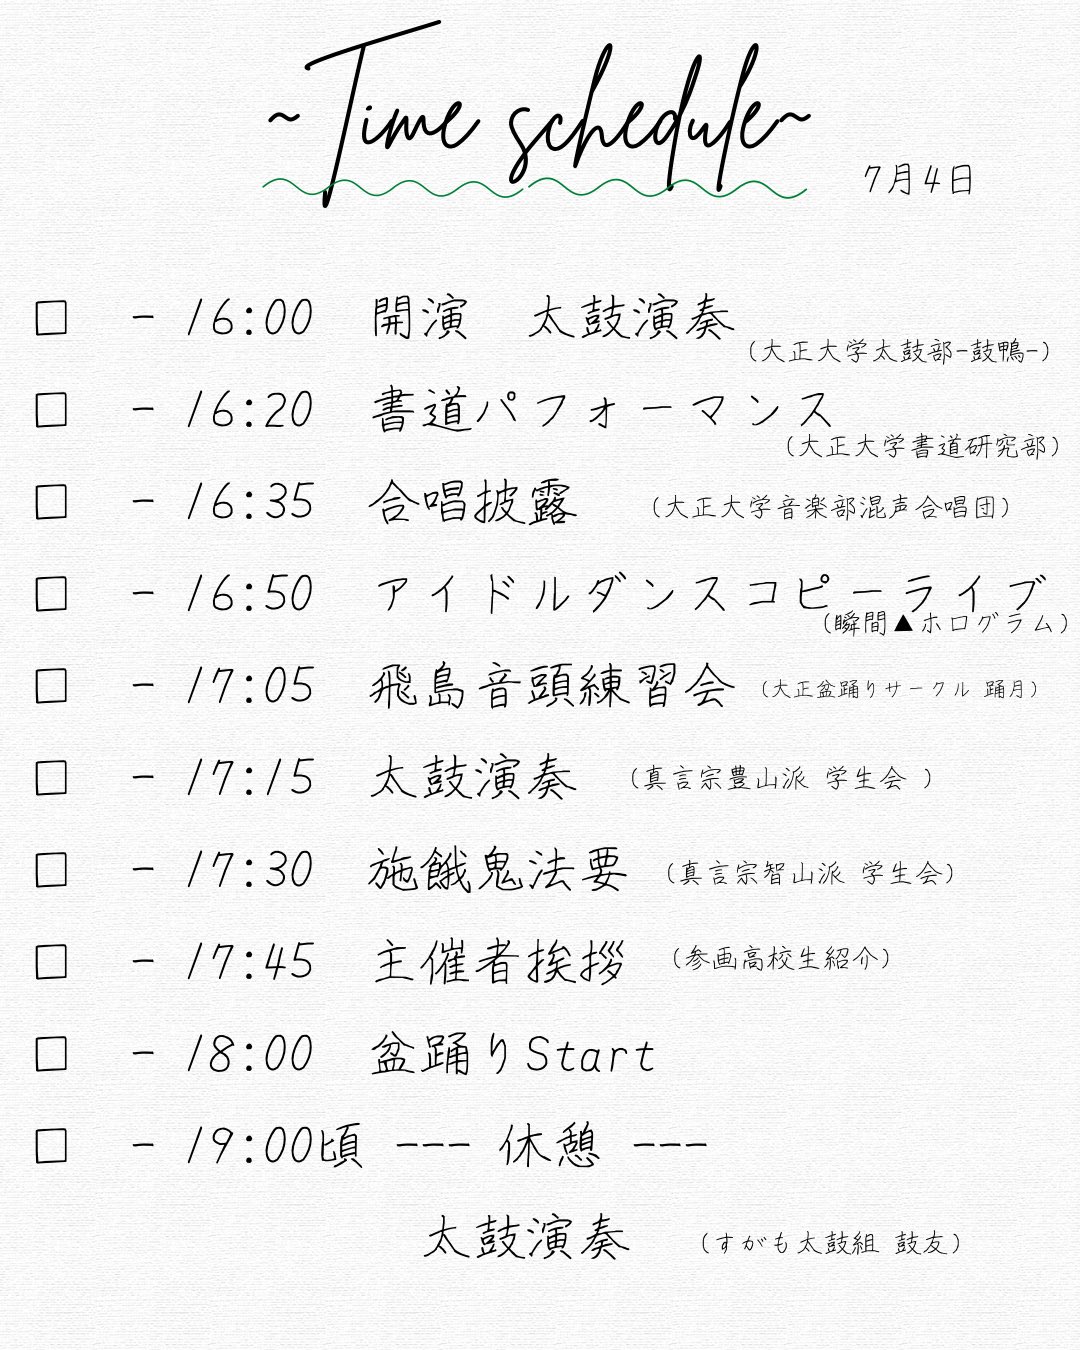 ~Time schedule~
7月4日
□ - 16:00 開演 太鼓演奏
(大正大学太鼓部-鼓鴨-)
□ - 16:20 書道パフォーマンス
(大正大学書道研究部)
□ - 16:35 合唱披露 (大正大学音楽部混声合唱団)
□ - 16:50 アイドルダンスコピーライブ
(瞬間▲ホログラム)
□ - 17:05 飛鳥音頭練習会 (大正盆踊りサークル 踊月)
□ - 17:15 太鼓演奏 (真言宗豊山派 学生会 )
□ - 17:30 施餓鬼法要 (真言宗智山派 学生会)
□ - 17:45 主催者挨拶 (参画高校生紹介)
□ - 18:00 盆踊りStart
□ - 19:00頃 --- 休憩 ---
太鼓演奏 (すがも太鼓組 鼓友)